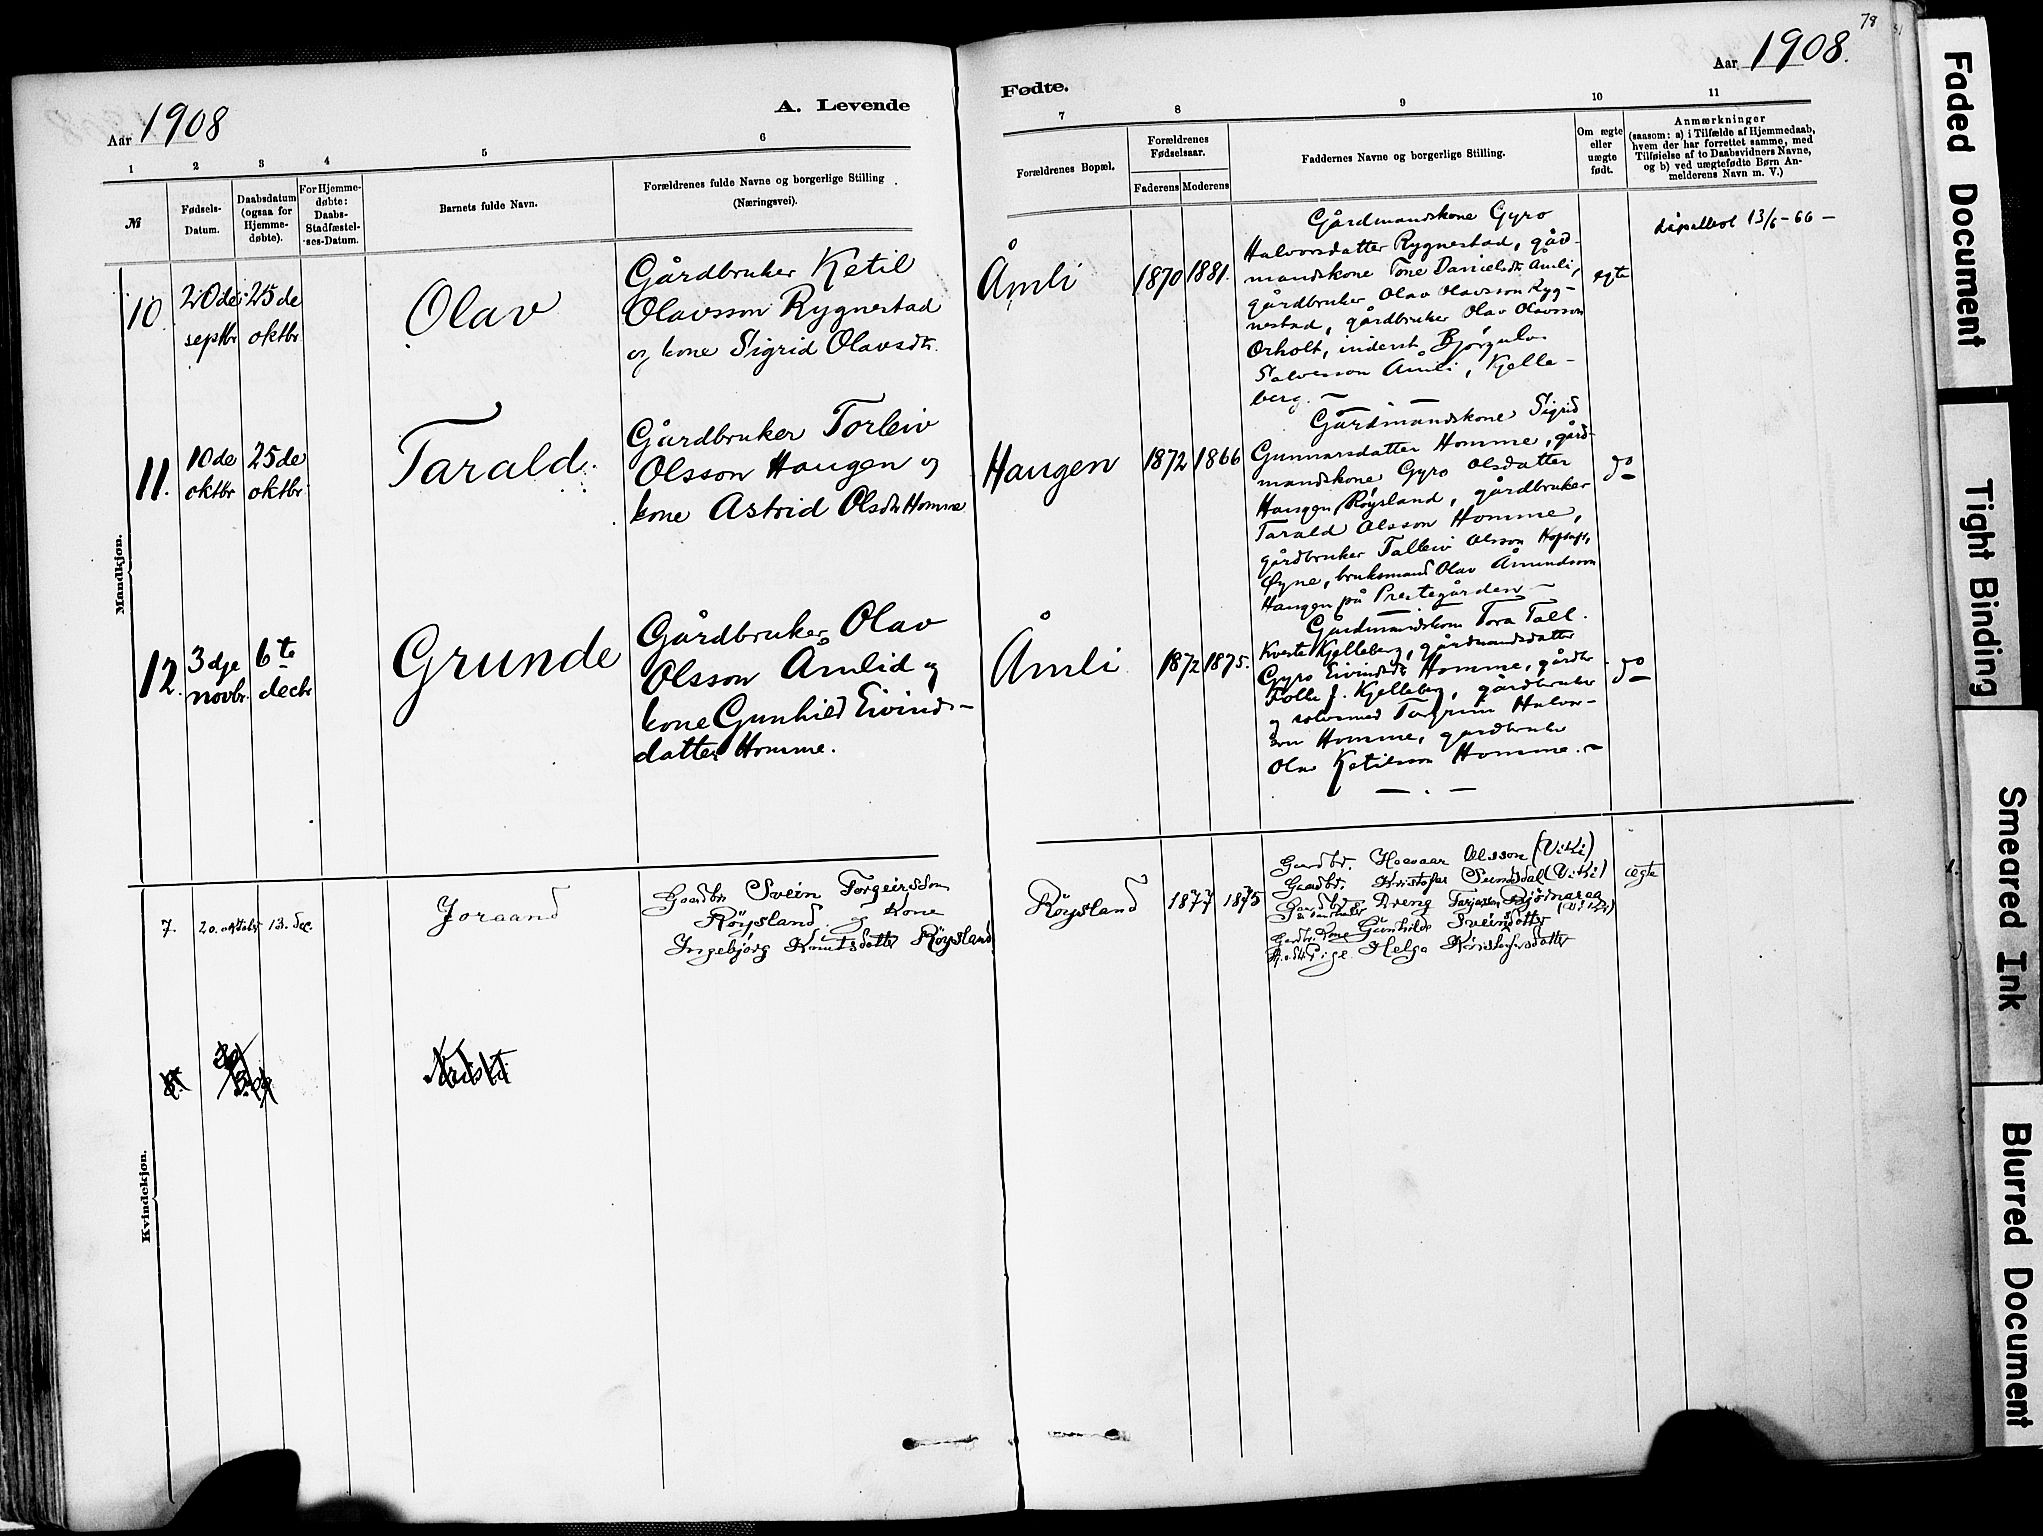 78
Aar 1908
A. Levende
Fødte.
Aar 1908.
1
2
3
4
5
6
7
8
9
10
11
№
Fødsels-
Datum.
Daabsdatum
(ogsaa for
Hjemme-
døbte).
For Hjemme-
døbte:
Daabs-
Stadfæstel-
ses-Datum.
Barnets fulde Navn.
Forældrenes fulde Navne og borgerlige Stilling
(Næringsvei).
Forældrenes Bopæl.
Forældrenes
Fødselsaar.
Faderens
Moderens
Faddernes Navne og borgerlige Stilling.
Om ægte
eller
uægte
født.
Anmærkninger
(saasom: a) i Tilfælde af Hjemmedaab,
hvem der har forrettet samme, med
Tilføielse af to Daabsvidners Navne,
og b) ved uægtefødte Børn An-
melderens Navn m. V.)
Mandkjøn.
10
20de
septbr
25de
oktbr
Olav
Gårdbruker Ketil
Olavsson Rygnestad
og kone Sigrid Olavsdtr.
Åmli
1870
1881.
Gårdmandskone Gyro
Halvorsdatter Rygnestad, gård-
mandskone Tone Danielsdtr Åmli,
gårdbruker Olav Olavsson Ryg-
nestad, gårdbruker Olav Olavsson
Orholt, inderst Bjørgulv
Salvesson Åmli, Kjelle-
berg.
egte
13/6-66 —
11.
10de
oktbr
25de
oktbr
Tarald.
Gårdbruker Torleiv
Olsson Haugen og
kone Astrid Olsdtr Homme
Haugen
1872
1866
Gårdmandskone Sigrid
Gunnarsdatter Homme, gård-
mandskone Gyro Olsdatter
Haugen Røysland, gårdbruker
Tarald Olsson Homme,
gårdbruker Talleiv Olsson
Øyne, bruksmand Olav Åmundsson
Haugen på Prestegården
do
12.
3dje
novbr.
6te
decbr
Grunde
Gårdbruker Olav
Olsson Åmlid og
kone Gunhild Eivinds-
datter Homme.
Åmli
1872
1875.
Gårdmandskone Tora Tall.
Kveste Kjelleberg, gårdmandsdatter
Gyro Eivindsdtr Homme, gårdbr
Folke J. Kjelleberg, gårdbruker
og sølvsmed Torgrim Halvor-
son Homme, gårdbruker
Olav Ketilsson Homme. —
do
Kvindekjøn.
7.
20. oktober
13. Dec.
Joraand
Gaardbr. Svein Torgeirsson
Røysland og Kone
Ingebjørg Knutsdatter Røysland
Røysland
1877
1875
Gaardbr. Haavaar Olsson (Viki)
Gaardbr. Kristofer Sundsdal (Viki)
Gaardbr. Dreng Tarjeison Bjørnaraa
(Viki)
Gaardbr. Kone Gunhilde Sveinsdatter
Pige Helga Kristofersdatter
ægte
8.
Faded Document
Tight Binding
Smeared Ink
Blurred Document